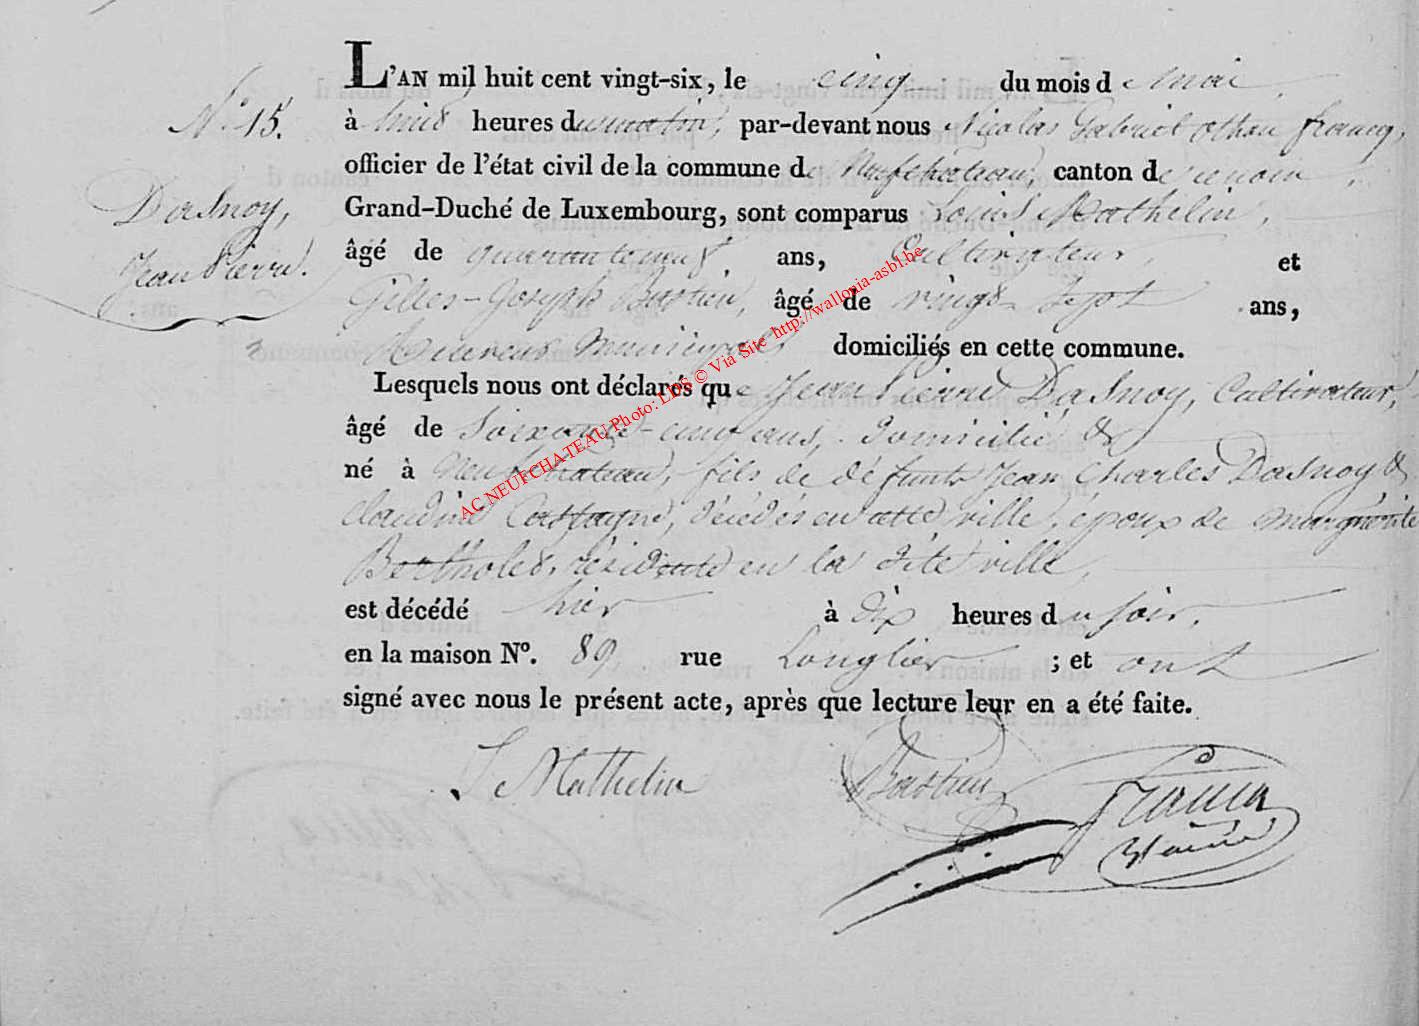 L'AN mil huit cent vingt-six, le cinq du mois de mai,
N.° 15.
à huit heures du matin, par-devant nous Nicolas Gabriel Othon Francq,
officier de l'état civil de la commune de Neufchateau, canton de
Dasnoy,
Grand-Duché de Luxembourg, sont comparus Louis Mathelin,
Jean Pierre.
âgé de quarante neuf ans, Cultivateur, et
Gilles-Joseph Bastien, âgé de vingt-sept ans,
Receveur Municipal domiciliés en cette commune.
Lesquels nous ont déclarés que Jean Pierre Dasnoy, Cultivateur,
âgé de soixante-cinq ans, domicilié &
né à Neufchateau, fils de défunts Jean Charles Dasnoy &
Claudine Castagne, décédés en cette ville, époux de Marguerite
Bertholet, résidente en la dite ville,
est décédé hier à dix heures du soir,
en la maison N°. 89 rue Longlier ; et ont
signé avec nous le présent acte, après que lecture leur en a été faite.
L Mathelin Bastien Francq
AC NEUFCHATEAU Photo: LDS © Via Site http://wallonia-asbl.be